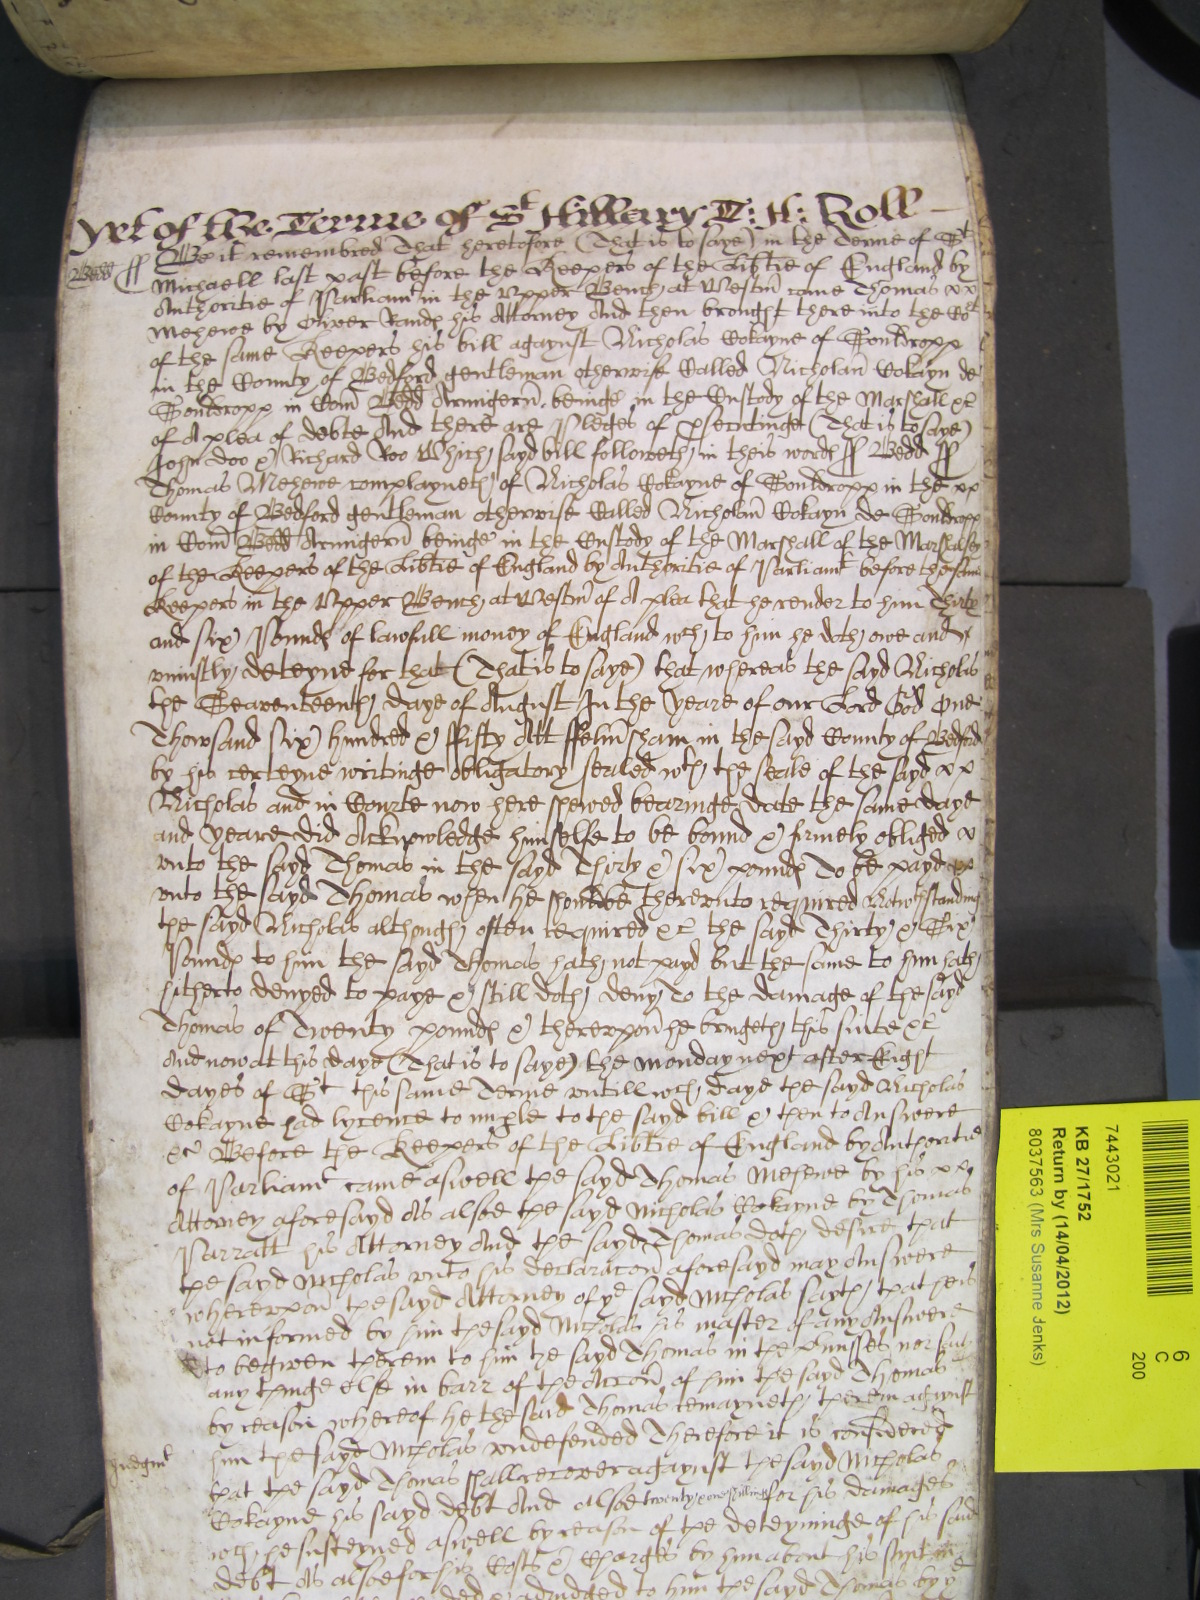 Yet of the Terme of St Hillary T: H: Roll
Bedd ss Be it remembred That heretofore (That is to saye) in the Terme of St
Michaell last past before the Keepers of the Libtie of England by
Authoritie of Parliamt in the Upper Bench at Westm came Thomas xx
Mehewe by Oliver Rands his Attorney And then brought there into the Cort
of the same Keepers his bill agaynst Nicholas Cokayne of Souldropp
in the County of Bedford gentleman otherwise Called Nicholan Cokayn de
Souldropp in Com Bedd Armigern beinge in the Custody of the Marshall &c
of A plea of debte And there are Pledges of psecutinge (That is to saye)
John Doo & Richard Roo Which sayd bill followeth in theis words ss Bedd ss
Thomas Mehewe complayneth of Nicholas Cokayne of Souldropp in the xx
County of Bedford gentleman otherwise Called Nicholan Cokayn de Souldropp
in Com Bedd Armigern beinge in the Custody of the Marshall of the Marshalsey
of the Keepers of the Libtie of England by Authoritie of Parliamt before the same
Keepers in the Upper Bench at Westm of A plea that he render to him Thirty
and six Pounds of lawfull money of England wch to him he doth owe and
uniustly deteyne for that (That is to saye) that whereas the sayd Nicholas
the Seaventeenth daye of August In the yeare of our Lord God One
Thowsand six hundred & ffifty Att ffelmsham in the sayd County of Bedford
by his certeyne writinge obligatory sealed wth the seale of the sayd xx
Nicholas and in Courte now here shewed bearinge date the same daye
and yeare did Acknowledge himselfe to be bound & firmely obliged x
unto the sayd Thomas in the sayd Thirty & six pounds To be payd xx
unto the sayd Thomas when he should be thereunto required Notwthstanding
the sayd Nicholas although often required &c the sayd Thirty & Six
Pounds to him the sayd Thomas hath not payd but the same to him hath
hitherto denyed to paye & still doth deny To the damage of the sayd
Thomas of Twenty pounds & thereupon he bringeth this suite &c
And now at this daye (That is to saye) the Monday next after Eight
dayes of St this same Terme untill wch daye the sayd Nicholas
Cokayne had lycence to imple to the sayd bill & then to Answere
&c Before the Keepers of the Libtie of England by Authoritie
of Parliamt came aswell the sayd Thomas Mehewe by his xx
Attorney aforesayd As alsoe the sayd Nicholas Cokayne by Thomas
Parratt his Attorney And the sayd Thomas doth desire that
the sayd Nicholas unto his declaracon aforesayd may Answere
whereupon the sayd Attorney of ye sayd Nicholas sayth that he is
not informed by him the sayd Nicholas his master of any Answere
to be given therein to him the sayd Thomas in the pmisses nor
any thinge else in barr of the Accon of him the sayd Thomas
by reason whereof he the said Thomas remayneth therein agaynst
him the sayd Nicholas undefended Therefore it is considered
Judgmt that the sayd Thomas shall recover agaynst the sayd Nicholas
Cokayne his sayd debt And alsoe twenty & one shillings for his damages
wch he susteyned aswell by reason of the deteyninge of his said
debt As alsoe for his Costs & Charges by him about his suit in
adiudged to him the sayd Thomas by
7443021
KB 27/1752
Return by (14/04/2012)
8037563 (Mrs Susanne Jenks)
6
C
200